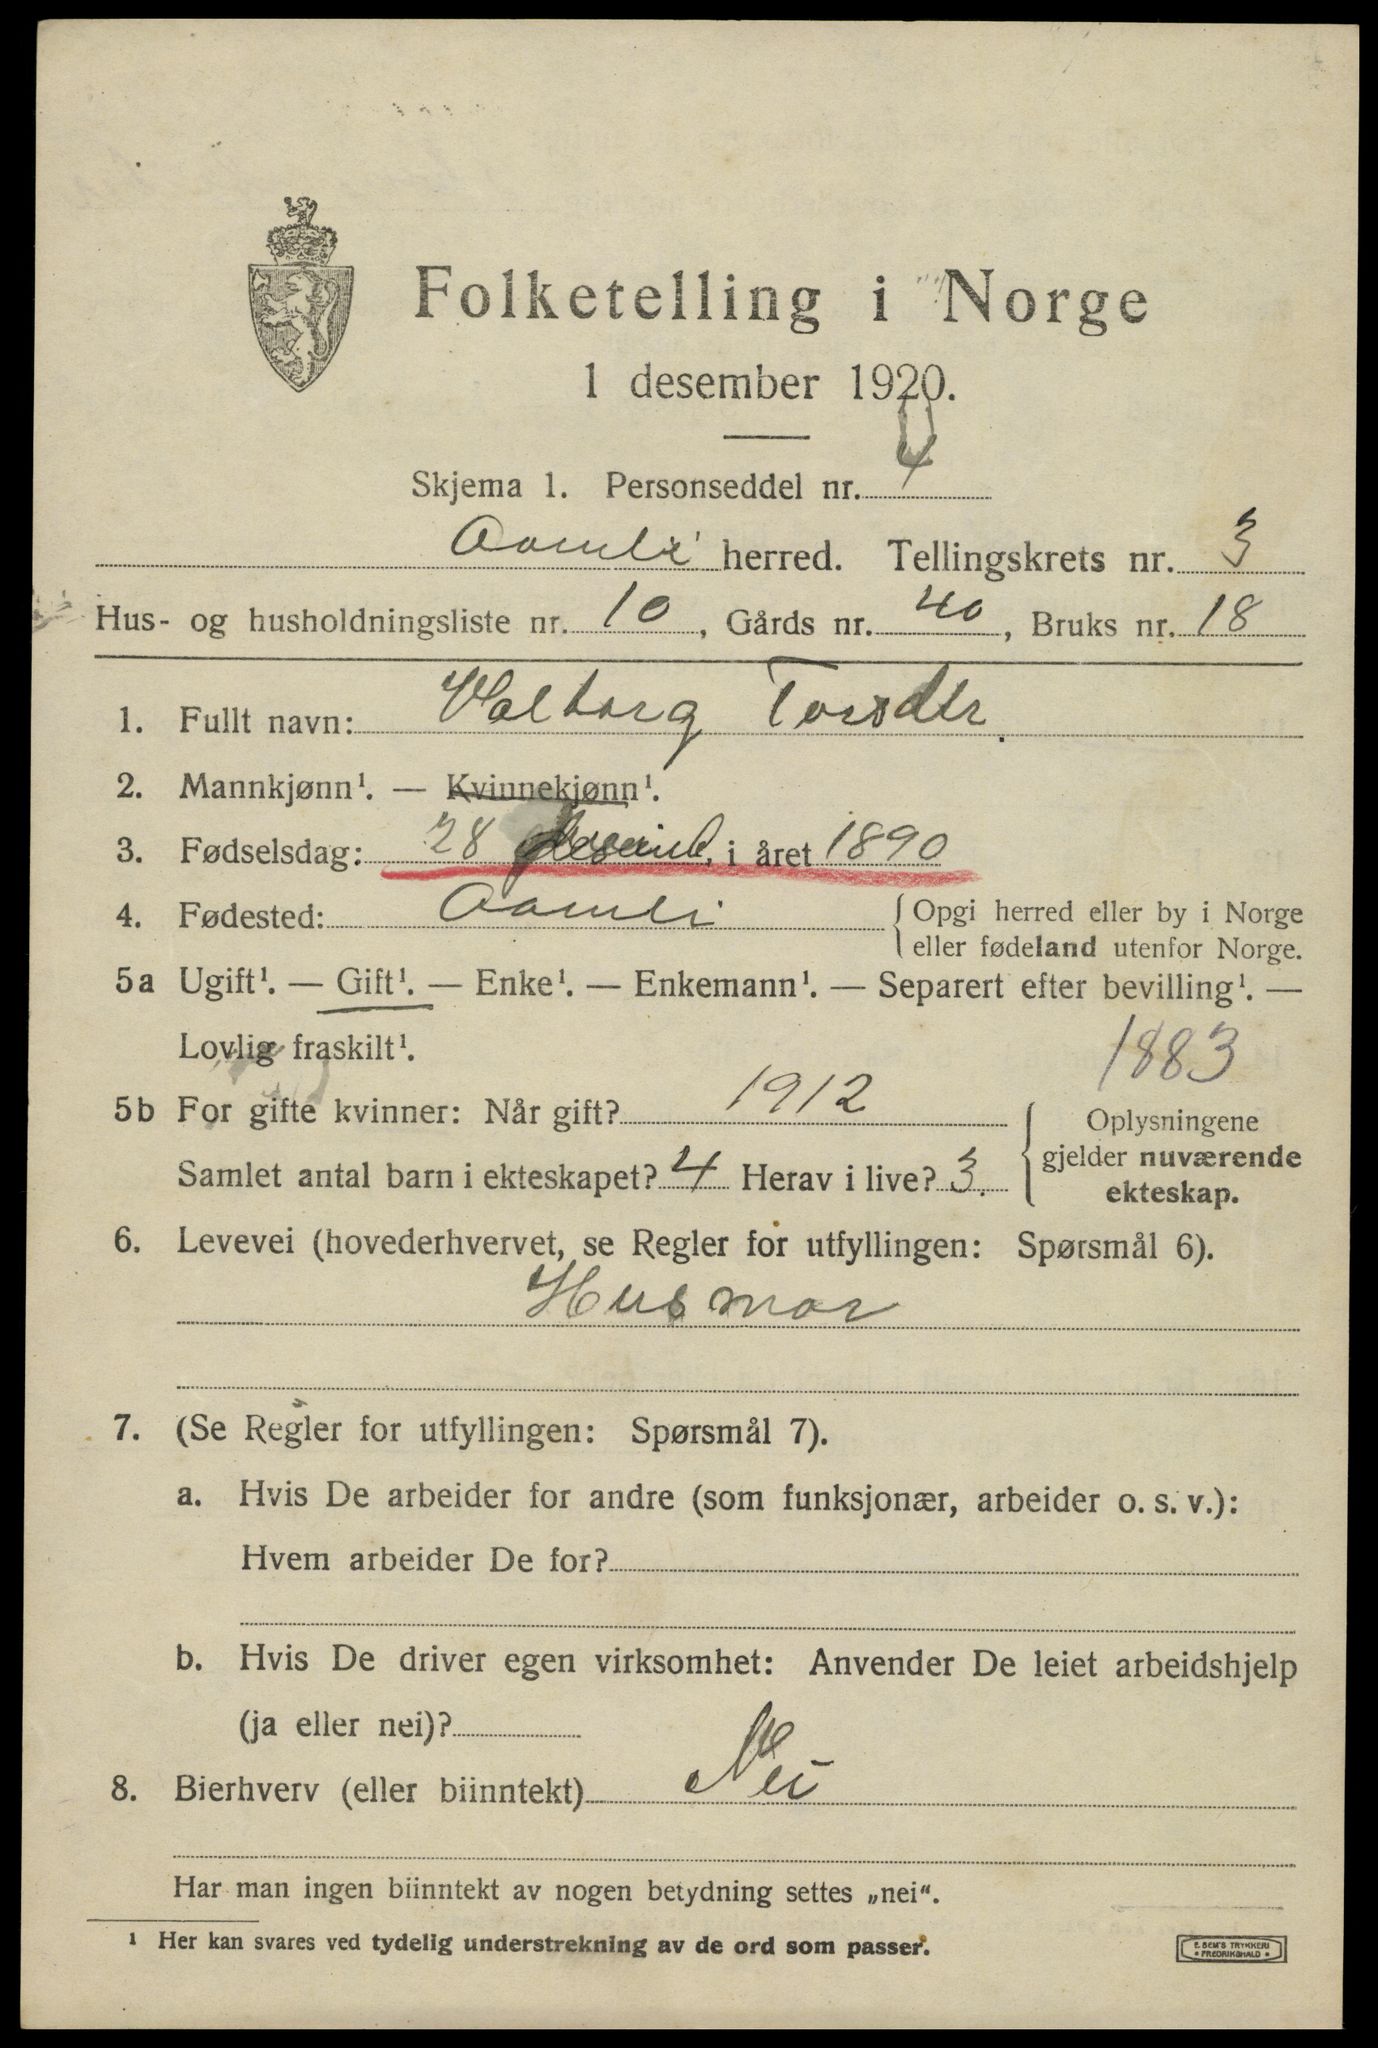 Folketelling i Norge
1 desember 1920.
Skjema 1. Personseddel nr. 4
Aamli herred. Tellingskrets nr. 3
Hus- og husholdningsliste nr. 10, Gårds nr. 40, Bruks nr. 18
1. Fullt navn: Valborg Torsdtr.
2. Mannkjønn¹. — Kvinnekjønn¹.
3. Fødselsdag: 28 , i året 1890
4. Fødested: Aamli {Opgi herred eller by i Norge
eller fødeland utenfor Norge.
5a Ugift¹. — Gift¹. — Enke¹. — Enkemann¹. — Separert efter bevilling¹. —
Lovlig fraskilt¹. 1883
5b For gifte kvinner: Når gift? 1912
Samlet antal barn i ekteskapet? 4 Herav i live? 3.
Oplysningene
gjelder nuværende
ekteskap.
6. Levevei (hovederhvervet, se Regler for utfyllingen: Spørsmål 6).
Husmor
7. (Se Regler for utfyllingen: Spørsmål 7).
a. Hvis De arbeider for andre (som funksjonær, arbeider o. s. v.):
Hvem arbeider De for?
b. Hvis De driver egen virksomhet: Anvender De leiet arbeidshjelp
(ja eller nei)?
8. Bierhverv (eller biinntekt) Nei
Har man ingen biinntekt av nogen betydning settes „nei“.
¹ Her kan svares ved tydelig understrekning av de ord som passer.
E. SEM'S TRYKKERI
• FREDRIKSHALD •